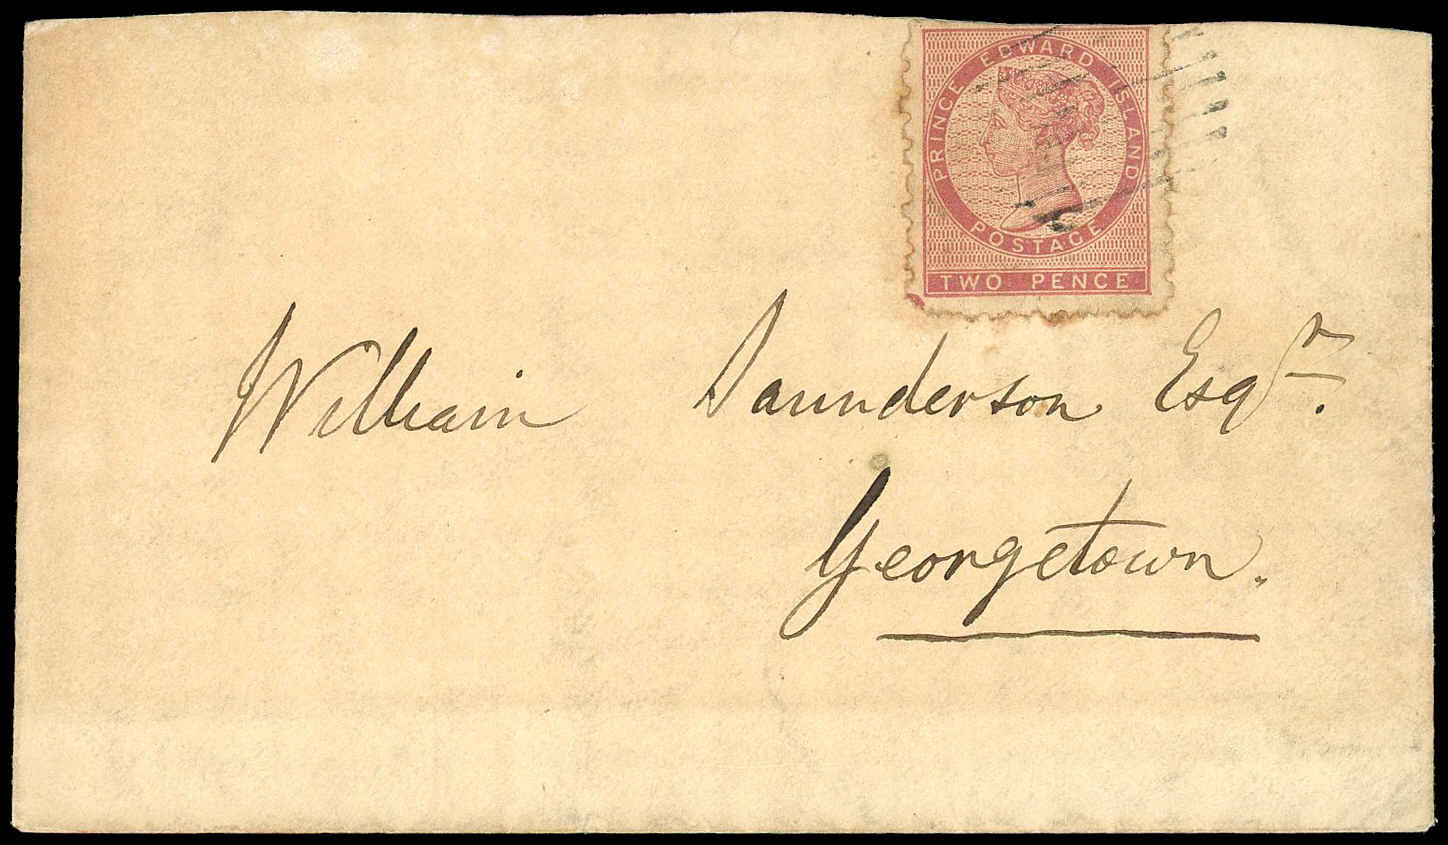 PRINCE EDWARD ISLAND
POSTAGE
TWO PENCE
William Saunderson Esqr.
Georgetown.